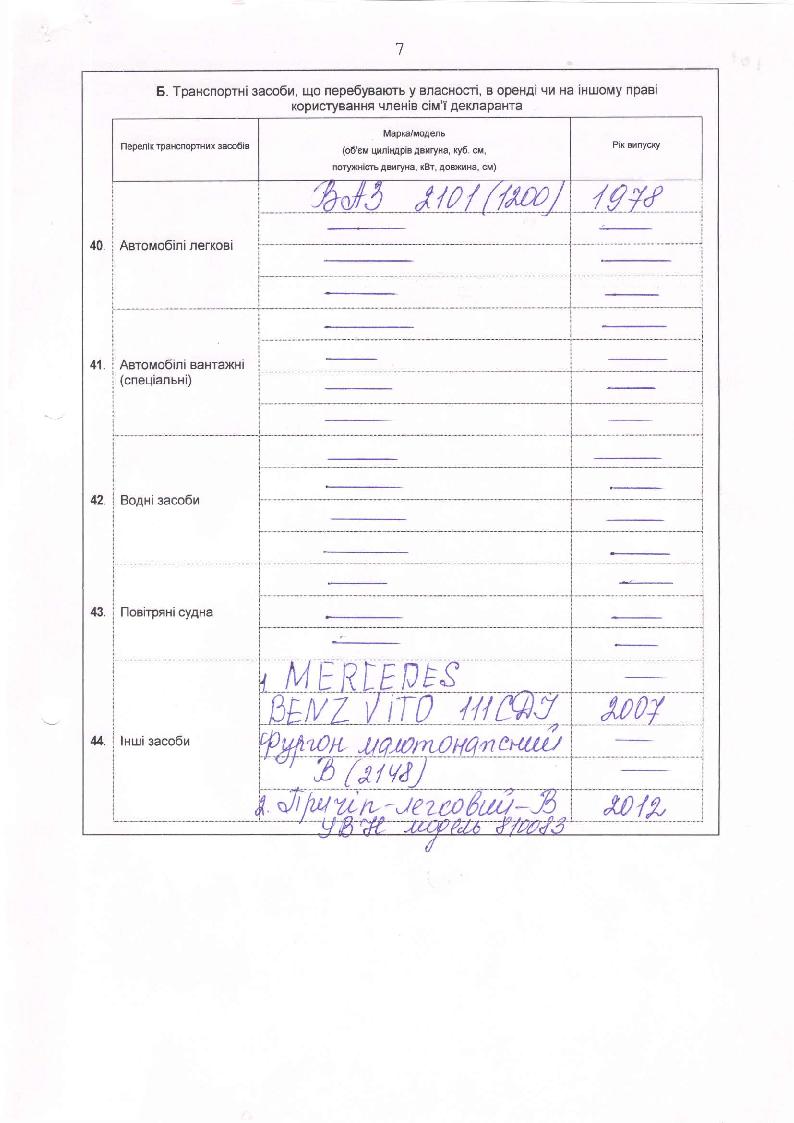 7
Б. Транспортні засоби, що перебувають у власності, в оренді чи на іншому праві
користування членів сім'ї декларанта
Перелік транспортних засобів
Марка/модель
(об'єм циліндрів двигуна, куб. см,
потужність двигуна, кВт, довжина, см)
Рік випуску
ВАЗ 2101 (1200) 1978
40. Автомобілі легкові
41. Автомобілі вантажні
(спеціальні)
42. Водні засоби
43. Повітряні судна
44. Інші засоби
1. MERCEDES
BENZ VITO 111 CДІ 2007
Фургон малотонажний
В (2148)
2. Причіп-легковий-В 2012
модель 810083